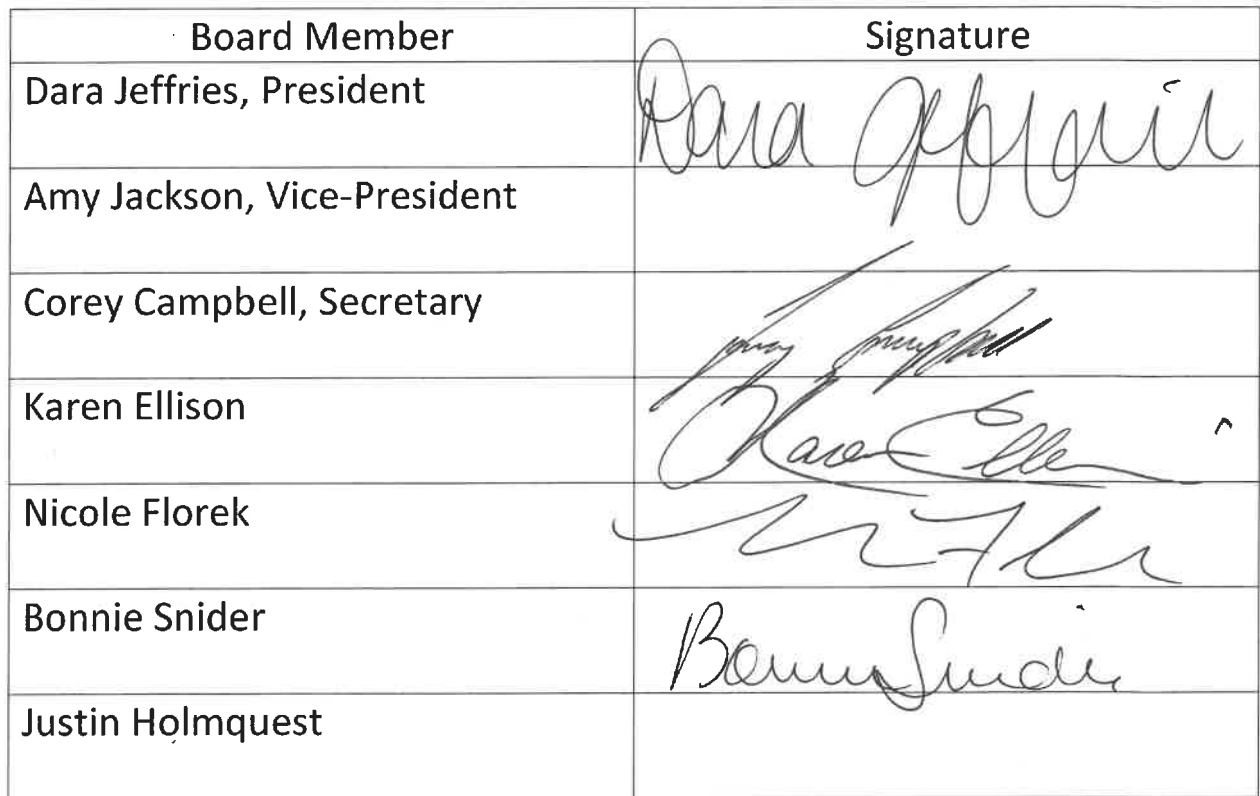 Board Member Signature
Dara Jeffries, President Dara Jeffries
Amy Jackson, Vice-President
Corey Campbell, Secretary Corey Campbell
Karen Ellison Karen Ellison
Nicole Florek
Bonnie Snider Bonnie Snider
Justin Holmquest